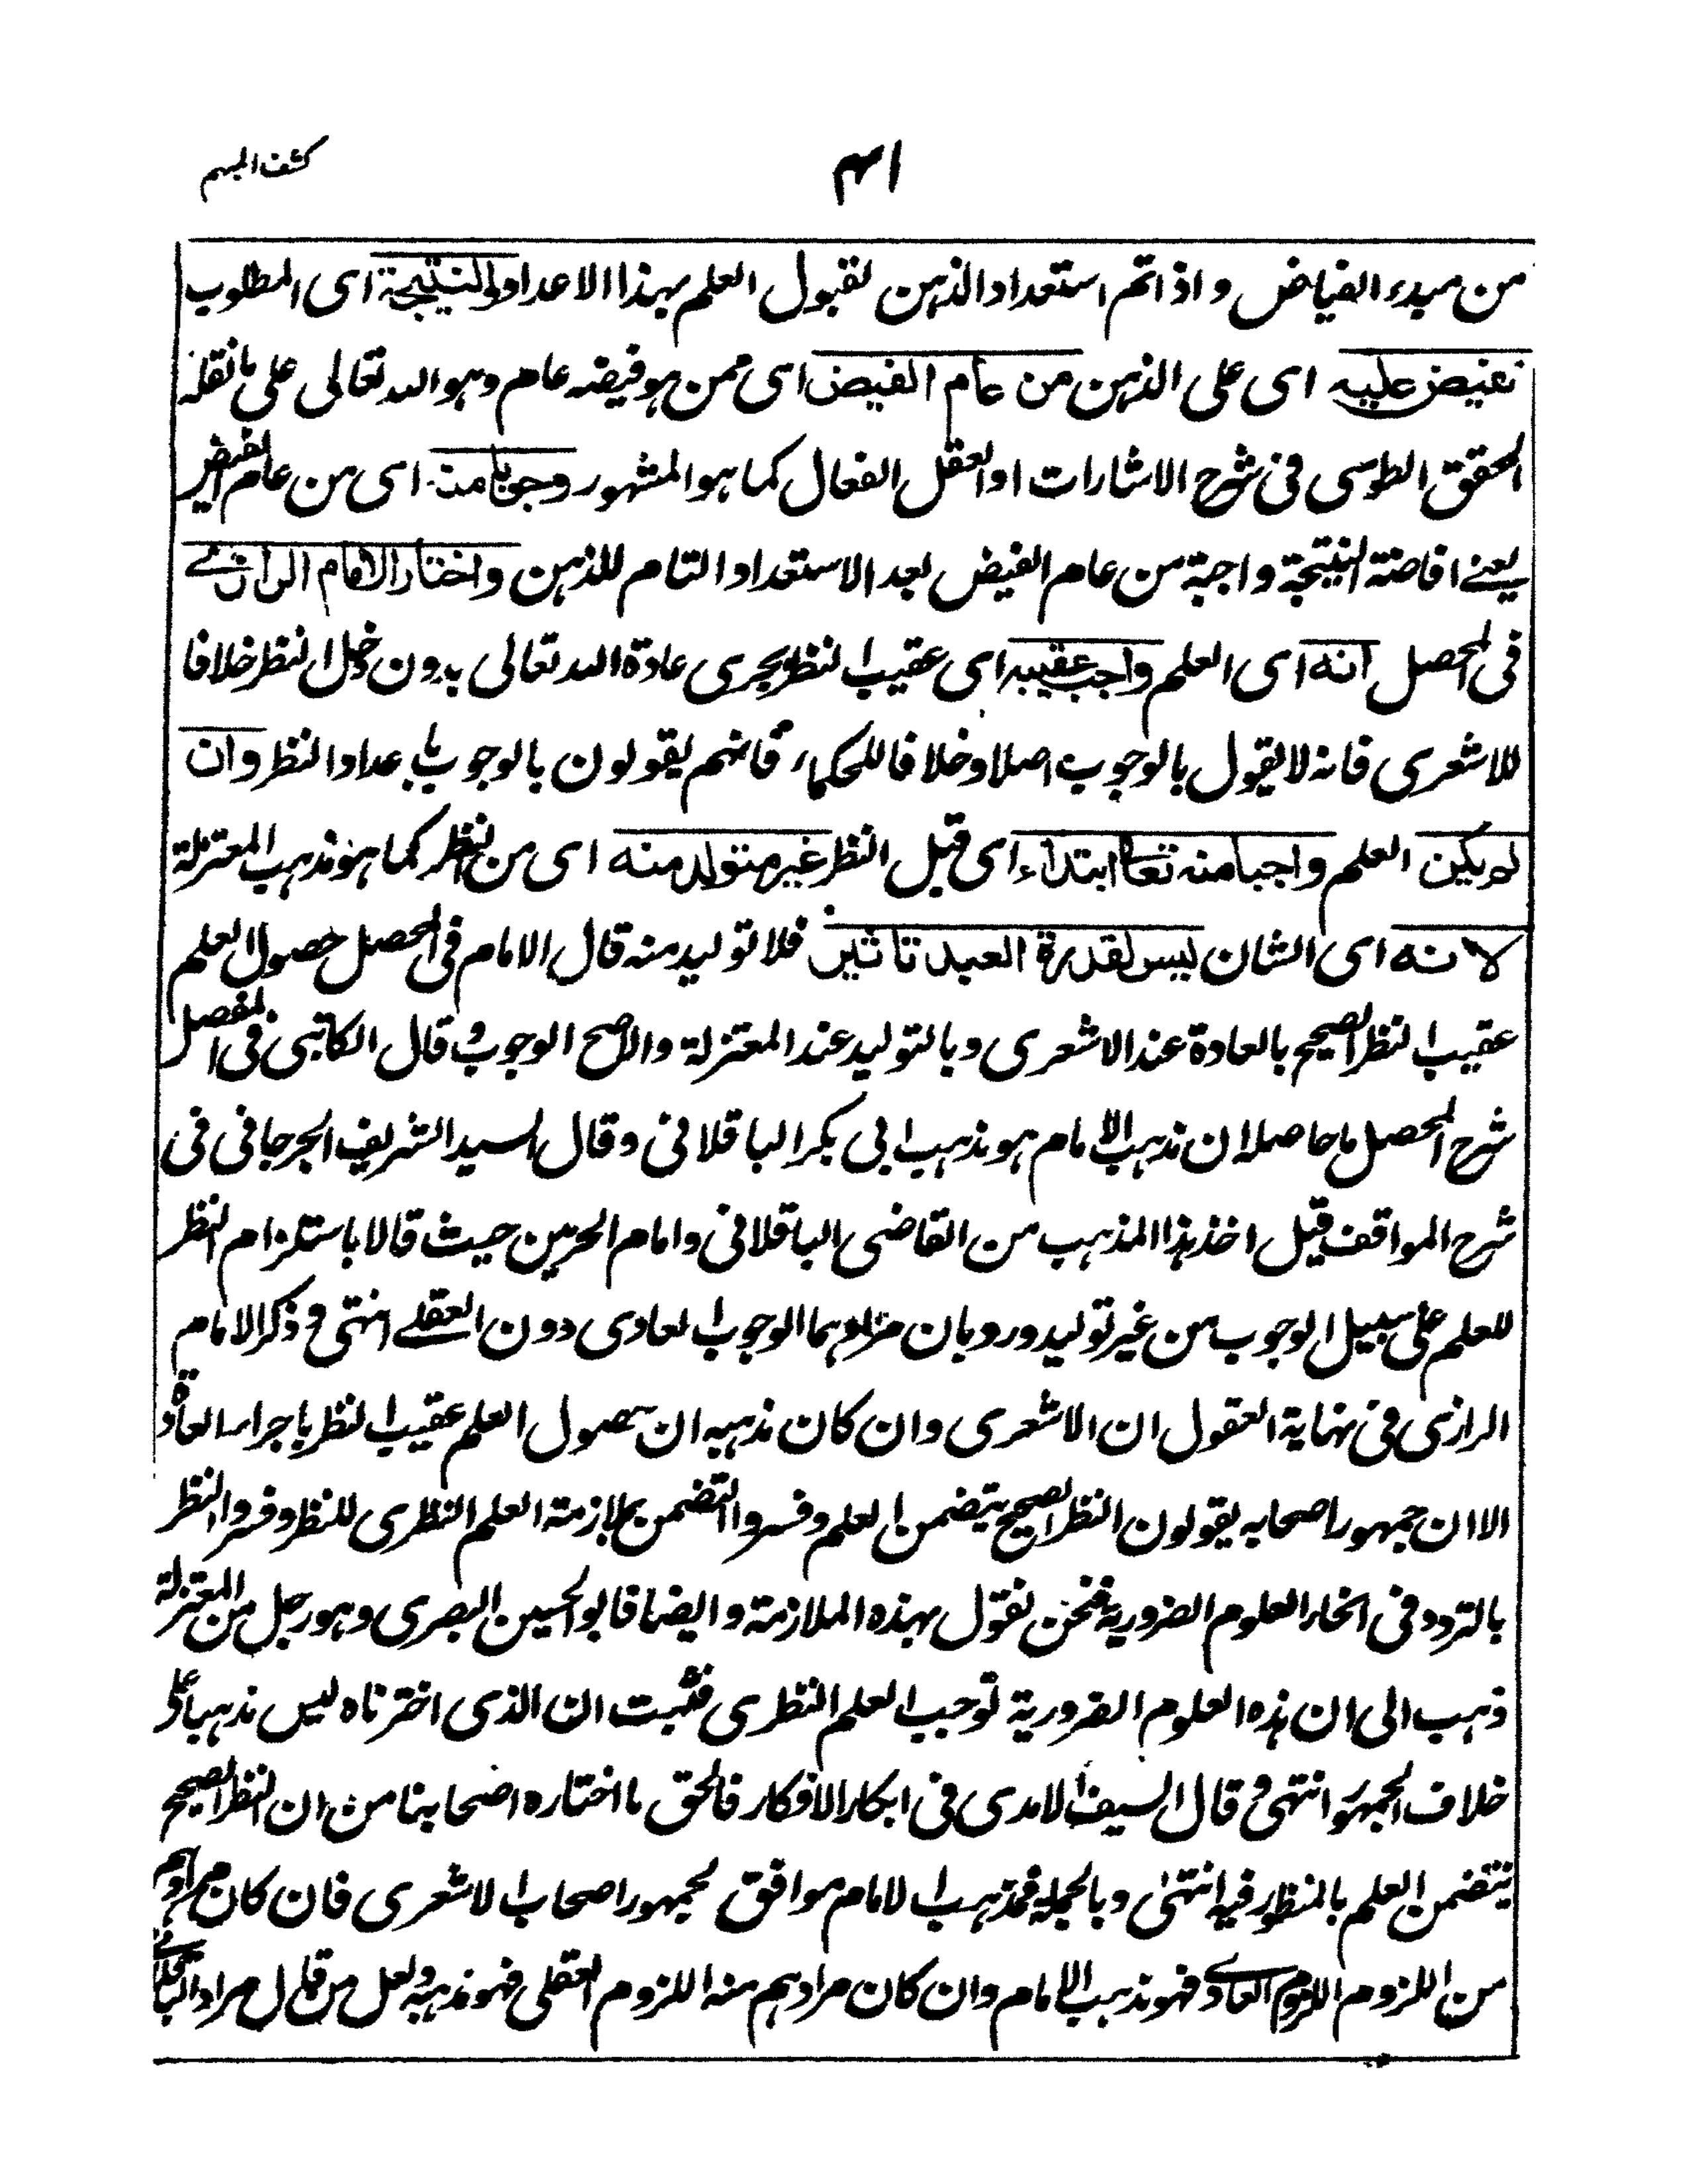 كشف المبهم
٤١
من مبدء الفياض واذا تم استعداد الذهن لقبول العلم بهذا الاعداد والنتيجة اى المطلوب
تفيض عليه اى على الذهن من عام الفيض اى ممن هو فيضه عام وهو الله تعالى على ما نقله
المحقق الطوسى فى شرح الاشارات او العقل الفعال كما هو المشهور وجوبا منه اى من عام الفيض
يعنے افاضة النتيجة واجبة من عام الفيض بعد الاستعداد التام للذهن واختار الامام الرازے
فى المحصل انه اى العلم واجب عقيبه اى عقيب النظر بجرى عادة الله تعالى بدون دخل النظر خلافا
للاشعرى فانه لا يقول بالوجوب اصلا وخلافا للحكماء فانهم يقولون بالوجوب باعداد النظر وان
لم يكن العلم واجبا منه تعالى ابتداء اى قبل النظر غير متولد منه اى من النظر كما هو مذهب المعتزلة
لانه اى الشان ليس لقدرة العبد تاثير فلا توليد منه قال الامام فى المحصل حصول العلم
عقيب النظر الصحيح بالعادة عند الاشعرى وبالتوليد عند المعتزلة والاصح الوجوب وقال الكاتبى فى المفصل
شرح المحصل ما حاصله ان مذهب الامام هو مذهب ابى بكر الباقلانى وقال السيد الشريف الجرجانى فى
شرح المواقف قيل اخذ هذا المذهب من القاضى الباقلانى وامام الحرمين حيث قالا باستلزام النظر
للعلم على سبيل الوجوب من غير توليد ورد بان مرادهما الوجوب العادى دون العقلے انتهى وذكر الامام
الرازى فى نهاية العقول ان الاشعرى وان كان مذهبه ان حصول العلم عقيب النظر باجراء العادة
الا ان جمهور اصحابه يقولون النظر الصحيح يتضمن العلم وفسروا التضمن بملازمة العلم النظرى للنظر وفسروا النظر
بالتردد فى انحاء العلوم الضرورية فنحن نقول بهذه الملازمة وايضا فابو الحسين البصرى وهو رجل من المعتزلة
ذهب الى ان هذه العلوم الضرورية توجب العلم النظرى فثبت ان الذى اخترناه ليس مذهبا على
خلاف الجمهور انتهى وقال السيف الامدى فى ابكار الافكار فالحق ما اختاره اصحابنا من ان النظر الصحيح
يتضمن العلم بالمنظور فيه انتهى وبالجملة فمذهب الامام موافق لجمهور اصحاب الاشعرى فان كان مرادهم
من اللزوم اللزوم العادے فهو مذهب الامام وان كان مرادهم منه اللزوم العقلى فهو مذهبه ولعل من قال مراد الباقلانے